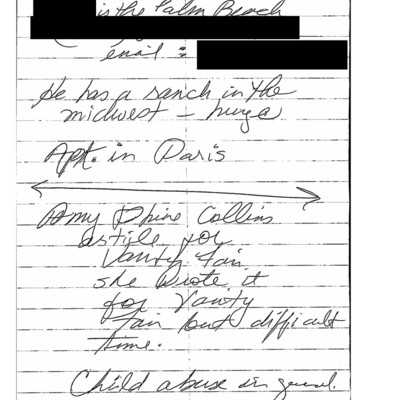 is the Palm Beach
email =
He has a ranch in the
midwest – huge
Apt. in Paris
Amy Phine Collins
article for
Vanity Fair
she wrote it
for Vanity
Fair but difficult
time.
Child abuse in general.